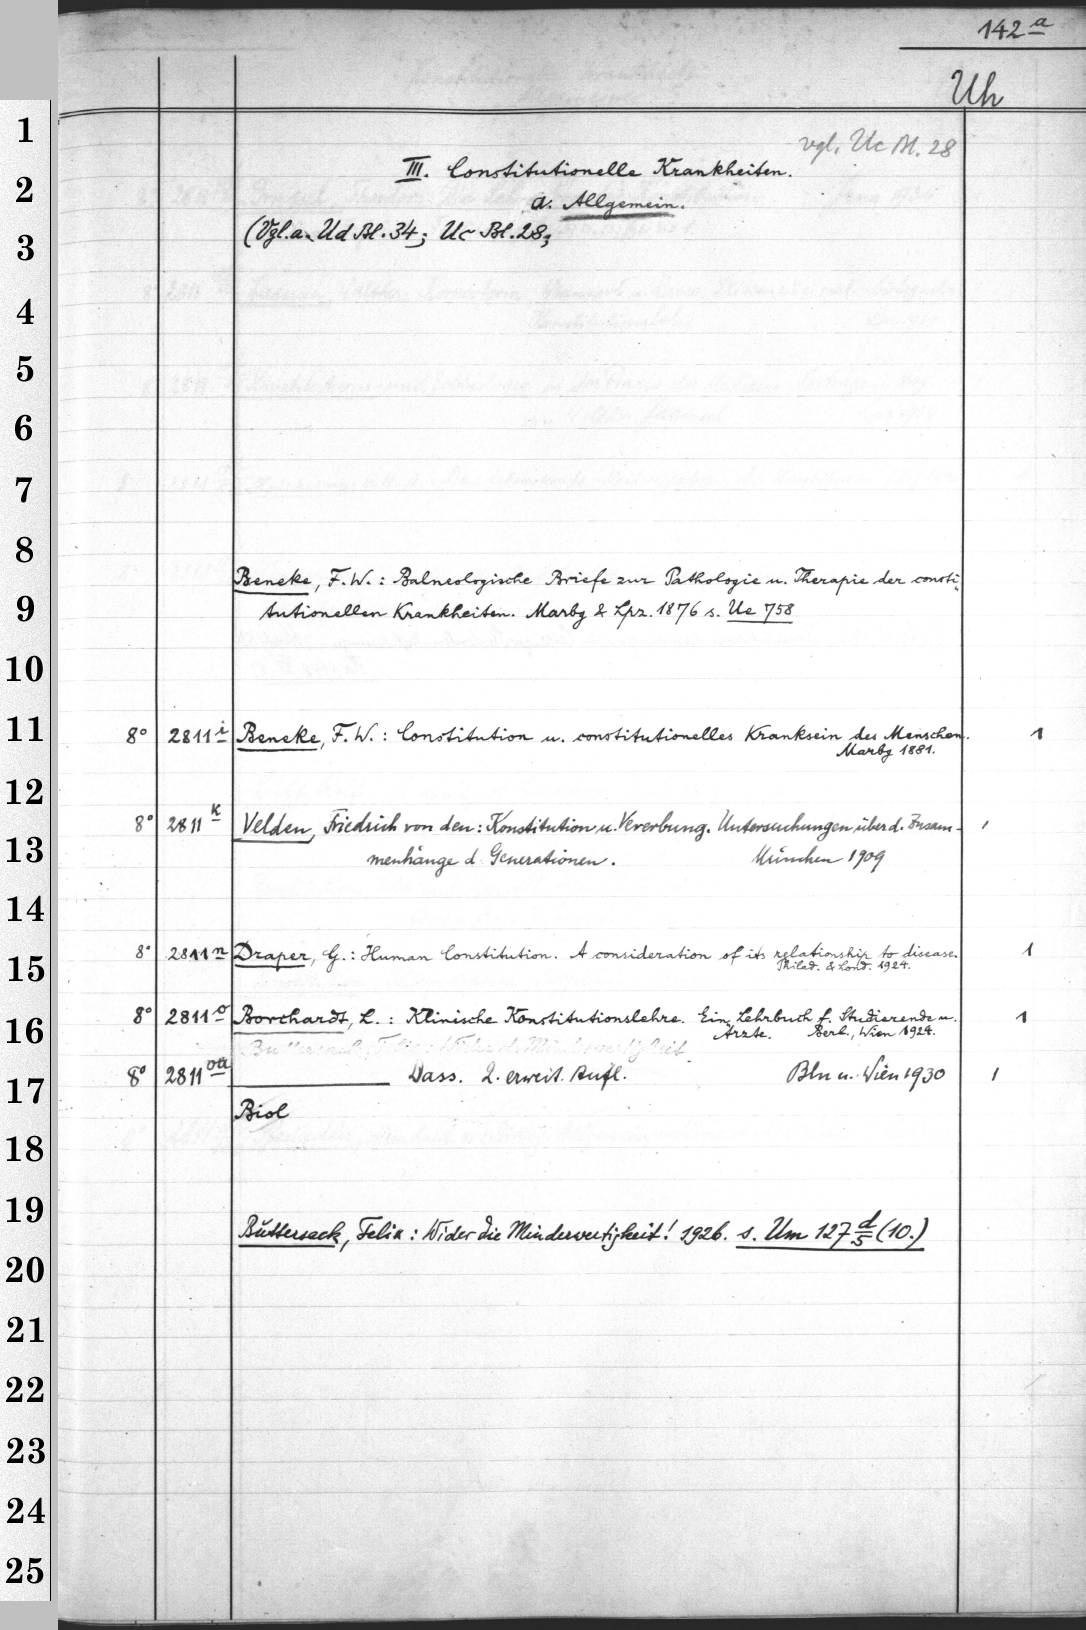 142 a
Uh
1
2
3
4
5
6
7
8
9
10
11
12
13
14
15
16
17
18
19
20
21
22
23
24
25
vgl. Uc Bl. 28
III. Constitutionelle Krankheiten.
a. Allgemein.
(Vgl. a. Ud Bl. 34; Uc Bl. 28;
Beneke, F. W.: Balneologische Briefe zur Pathologie u. Therapie der consti-
tutionellen Krankheiten. Marbg & Lpz. 1876 s. Ue 758
8° 2811 i Beneke, F. W.: Constitution u. constitutionelles Kranksein des Menschen. 1
Marbg 1881.
8° 2811 k Velden, Friedrich von den: Konstitution u. Vererbung. Untersuchungen über d. Zusam- 1
menhänge d. Generationen. München 1909
8° 2811 n Draper, G.: Human Constitution. A consideration of its relationship to disease. 1
Philad. & Lond. 1924.
8° 2811 o Borchardt, L.: Klinische Konstitutionslehre. Ein Lehrbuch f. Studierende u. 1
Ärzte. Berl., Wien 1924.
8° 2811 oa Dass. 2. erweit. Aufl. Bln u. Wien 1930 1
Biol
Buttersack, Felix: Wider die Minderwertigkeit! 1926. s. Um 127 d/5 (10.)